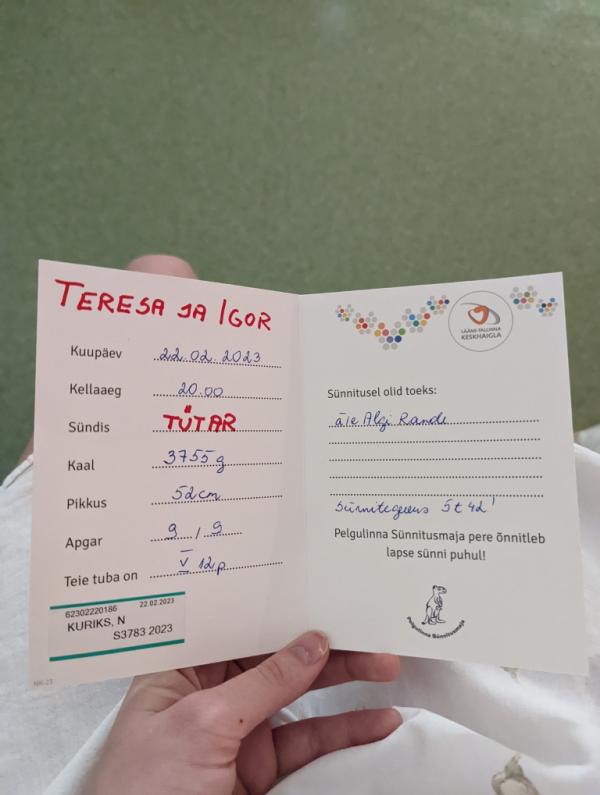 TERESA JA IGOR
Kuupäev 22.02.2023
Kellaaeg 20.00
Sündis TÜTAR
Kaal 3755 g
Pikkus 52 cm
Apgar 9 / 9
Teie tuba on V 12 p.
62302220186 22.02.2023
KURIKS, N
S3783 2023
NK-23
LÄÄNE-TALLINNA
KESKHAIGLA
Sünnitusel olid toeks:
Algi Rande
5t 42'
Pelgulinna Sünnitusmaja pere õnnitleb
lapse sünni puhul!
Pelgulinna Sünnitusmaja